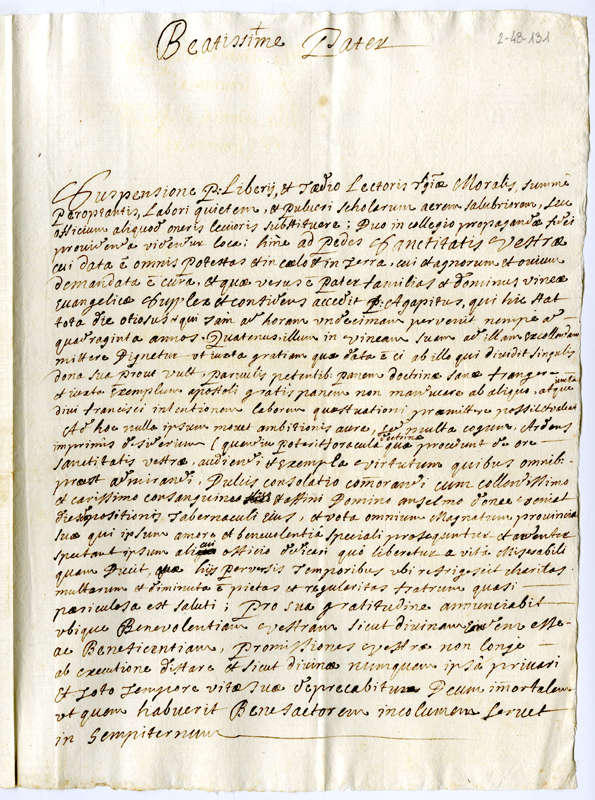 Beatissime Pater
2-48-131
Suspensione P: Liberij, et Tædio Lectoris Moralis, summè
peroptantis, Labori quietem, et pulveri scholarum aerem salubriorem, seu
officium aliquod oneris levioris substituere; Duo in collegio propagandæ fidei
providendæ videntur loca; hinc ad pedes Sanctitatis Vestræ
cui data ē omnis potestas et in cælo et in terra, cui et agnorum et ovium
demandata ē cura, et quæ verus ē Pater familias et dominus vineæ
evangelicæ supplex et confidens accedit P: Agapitus, qui hic stat
tota die otiosus et qui iam ad horam undecimam pervenit nempè ad
quadraginta annos. Quatenus illum in vineam suam ad illam excollendam
mittere dignetur ut iuxta gratiam quæ data ē ei ab illo qui dividit singulis
dona sua prout vult, parvulis petentib: panem doctrinæ sanæ frangere
et iuxta exemplum apostoli gratis panem non manducare ab aliquo, atque iuxta
divi francisci intentionem laborem quæstuationi præmittere possit et valeat
Ad hoc nulla ipsum movet ambitionis auræ, sed multa cogunt, Ardens
imprimis desiderium (quamdiu poterit) oracula doctrinæ quæ procedunt de ore
sanctitatis vestræ, audiendi et exempla virtutum quibus omnib:
præest admirandi, Dulcis consolatio comorandi cum collendissimo
et carissimo consanguineo et affini Domino Anselmo donec veniat
dies depositionis Tabernaculi eius, et vota omnium Magnatum provinciæ
suæ qui ipsum amore et benevolentia speciali prosequuntur et aventer
spectant ipsum alicui officio dedicari quò liberetur a vitâ miserabili
quam ducit, quæ hijs perversis temporibus ubi refrigescit charitas
multarum et diminuta ē pietas et regularitas fratrum quasi
pæriculosa est saluti; pro suâ gratitudine annunciabit
ubique Benevolentiam vestram sicut divinam eandem esse
ac Beneficentiam, promissiones vestras non longè
ab executione distare et sicut divinæ numquam ipsâ privari
Et toto tempore vitæ suæ deprecabitur Deum imortalem
ut quem habuerit Benefactorem incolumem servet
in sempiternum